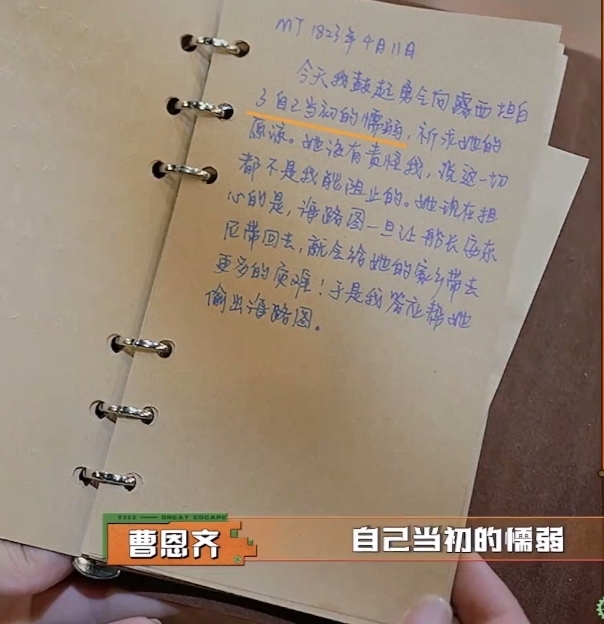 MT 1823年4月11日
今天我鼓起勇气向露西坦白
了自己当初的懦弱,祈求她的
原谅。她没有责怪我,说这一切
都不是我能阻止的。她现在担
心的是,海路图一旦让船长安东
尼带回去,就会给她的家乡带去
更多的灾难!于是我答应帮她
偷出海路图。
GREAT ESCAPE
曹恩齐
自己当初的懦弱